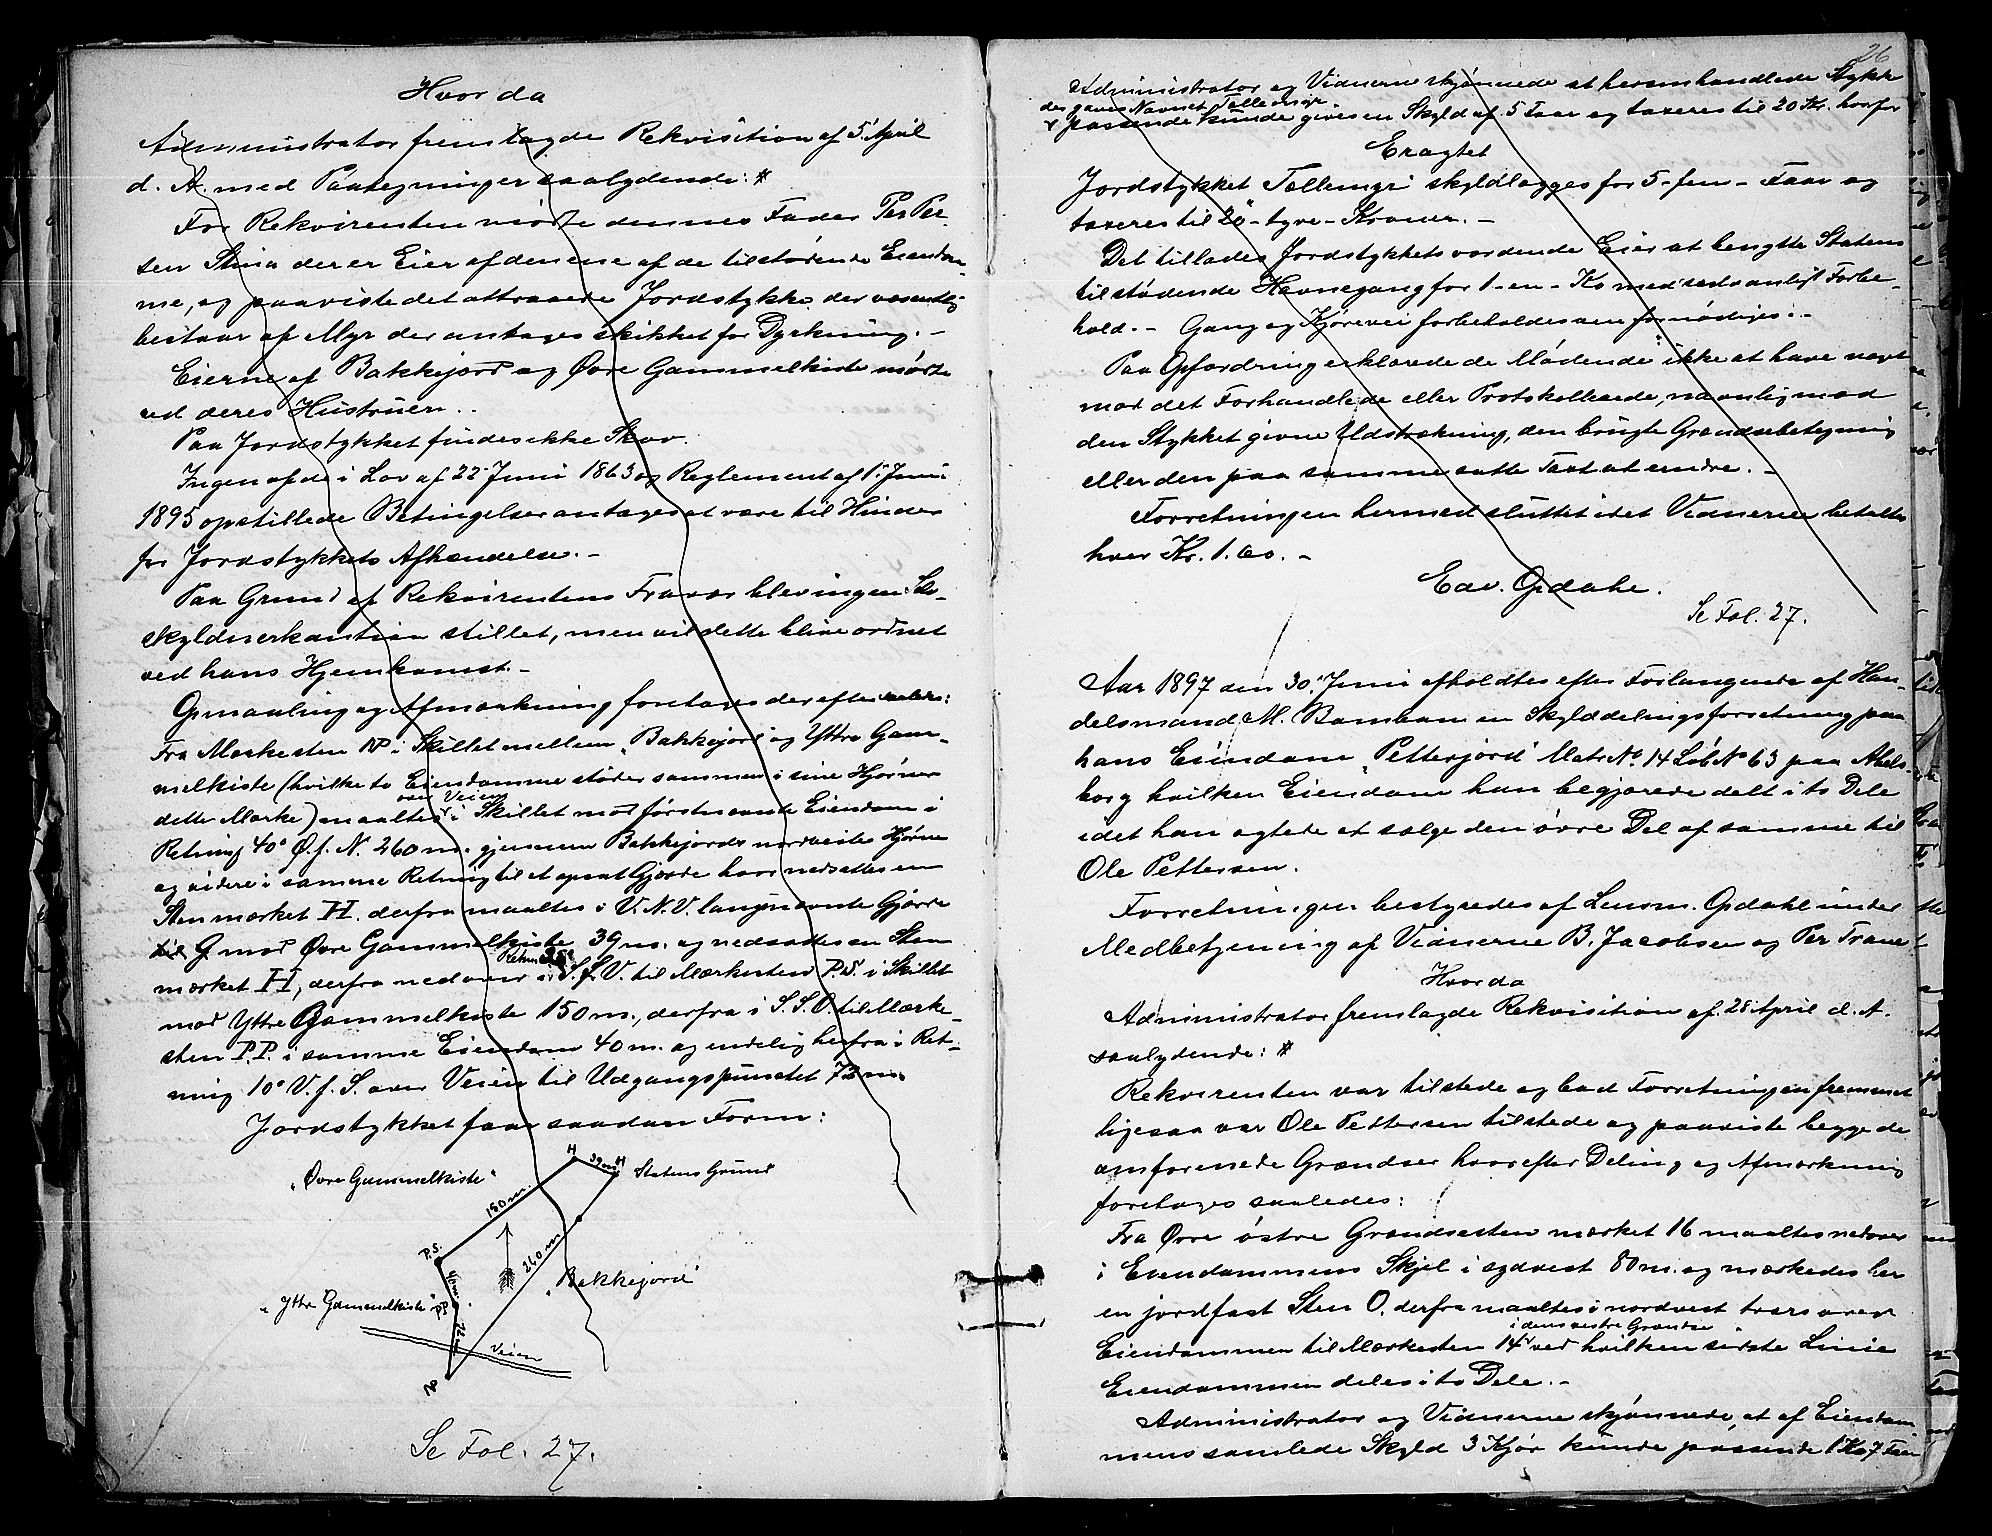 Hvor da
Administrator fremlagde Rekvisition af 5' April
d. A. med Paategninger saalydende: #
For Rekvirenten mødte dennes Fader Per Per-
sen Stuia der er Eier af den ene af de tilstødende Eiendom-
me, og paaviste det attraaede Jordstykke der væsentlig
bestaar af Myr der antages skikket for Dyrkning. -
Eierne af Bakkejord og Øvre Gammelkiste mødte
ved deres Hustruer.
Paa Jordstykket findes ikke Skov.
Ingen af de i Lov af 22' Juni 1863 og Reglement af 1' Juni
1895 opstillede Betingelser antages at være til Hinder
for Jordstykkets Afhændelse. -
Paa Grund af Rekvirentens Fravær blev ingen Se-
skyldnerkaution stillet, men vil dette blive ordnet
ved hans Hjemkomst. -
Opmaaling og Afmærkning foretoges derefter saaledes:
Fra Mærkesten NP i Skillet mellem "Bakkejord" og Yttre Gam-
melkiste (hvilke to Eiendomme støder sammen i sine Hjørner
over Veien
dette Mærke) maaltes i Skillet mod førstnævnte Eiendom i
Retning 40° Ø.f. N. 260 m. gjennem Bakkejords nordvestre Hjørne
og videre i samme Retning til et opsat Gjærde hvor nedsattes en
Sten mærket H. derfra maaltes i V.N.V. langs nævnte Gjærde
til G mod Øvre Gammelkiste 39 m. og nedsattes en Sten
mærket H, derfra nedover i S.f.V. til Mærkesten P.S. i Skillet
mod Yttre Gammelkiste 150 m., derfra i S.S.O. til Mærke-
sten P.P. i samme Eiendom 40 m. og endelig herfra i Ret-
ning 10° V.f. S. over Veien til Udgangspunctet 72 m.
Jordstykket faar saadan Form:
"Øvre Gammelkiste"
H
39 m
H
Statens Grund
150 m.
P.S.
260 m
40 m
"Bakkejord"
"Yttre Gammelkiste"
P.P.
72 m
Veien
NP
Se Fol. 27.
26
Administrator og Vidnerne skjønnede at heromhandlede Stykke
der gaves Navnet Tællemyr
passende kunde gives en Skyld af 5 Faar og taxeres til 20 Kr. hvorfor
Eragtet
Jordstykket "Tællemyr" skyldlægges for 5 - fem - Faar og
taxeres til 20 - tyve - Kroner. -
Det tillades Jordstykkets vordende Eier at benytte Statens
tilstødende Havnegang for 1 - en - Ko med sedvanligt Forbe-
hold. - Gang og Kjørevei forbeholdes om fornødiges. -
Paa Opfordring erklærede de Mødende ikke at have noget
mod det Forhandlede eller Protokollerede, navnlig mod
den Stykket givne Udstrækning, den brugte Grændsebetegning
eller den paa samme satte Taxt at erindre. -
Forretningen hermed sluttet idet Vidnerne betaltes
hver Kr. 1.60. -
Edv. Opdahl.
Se Fol. 27.
Aar 1897 den 30' Juni afholdtes efter Forlangende af Han-
delsmand M. Bomban en Skylddelingsforretning paa
hans Eiendom "Petterjord" Matr No 14 Løb No 63 paa Abels-
borg hvilken Eiendom han begjærede delt i to Dele
idet han agtede at sælge den øvre Del af samme til
Ole Pettersen.
Forretningen bestyredes af Lensm. Opdahl under
Medbetjening af Vidnerne B. Jacobsen og Per Trane
Hvor da
Administrator fremlagde Rekvisition af 28 April d. A.
saalydende: #
Rekvirenten var tilstede og bad Forretningen fremmet
ligesaa var Ole Pettersen tilstede og paaviste begge de
omforenede Grændser hvorefter Deling og Afmærkning
foretoges saaledes:
Fra Øvre østre Grændsesten mærket 16 maaltes nedover
i Eiendommens Skjel i sydvest 80 m. og mærkedes her
en jordfast Sten O. derfra maaltes i nordvest tvers over
i dens vestre Grændse
Eiendommen til Mærkesten 14 ved hvilken sidste Linie
Eiendommen deles i to Dele. -
Administrator og Vidnerne skjønnede, at af Eiendom
mens samlede Skyld 3 Kjør kunde passende 1 Ko 7 Faar